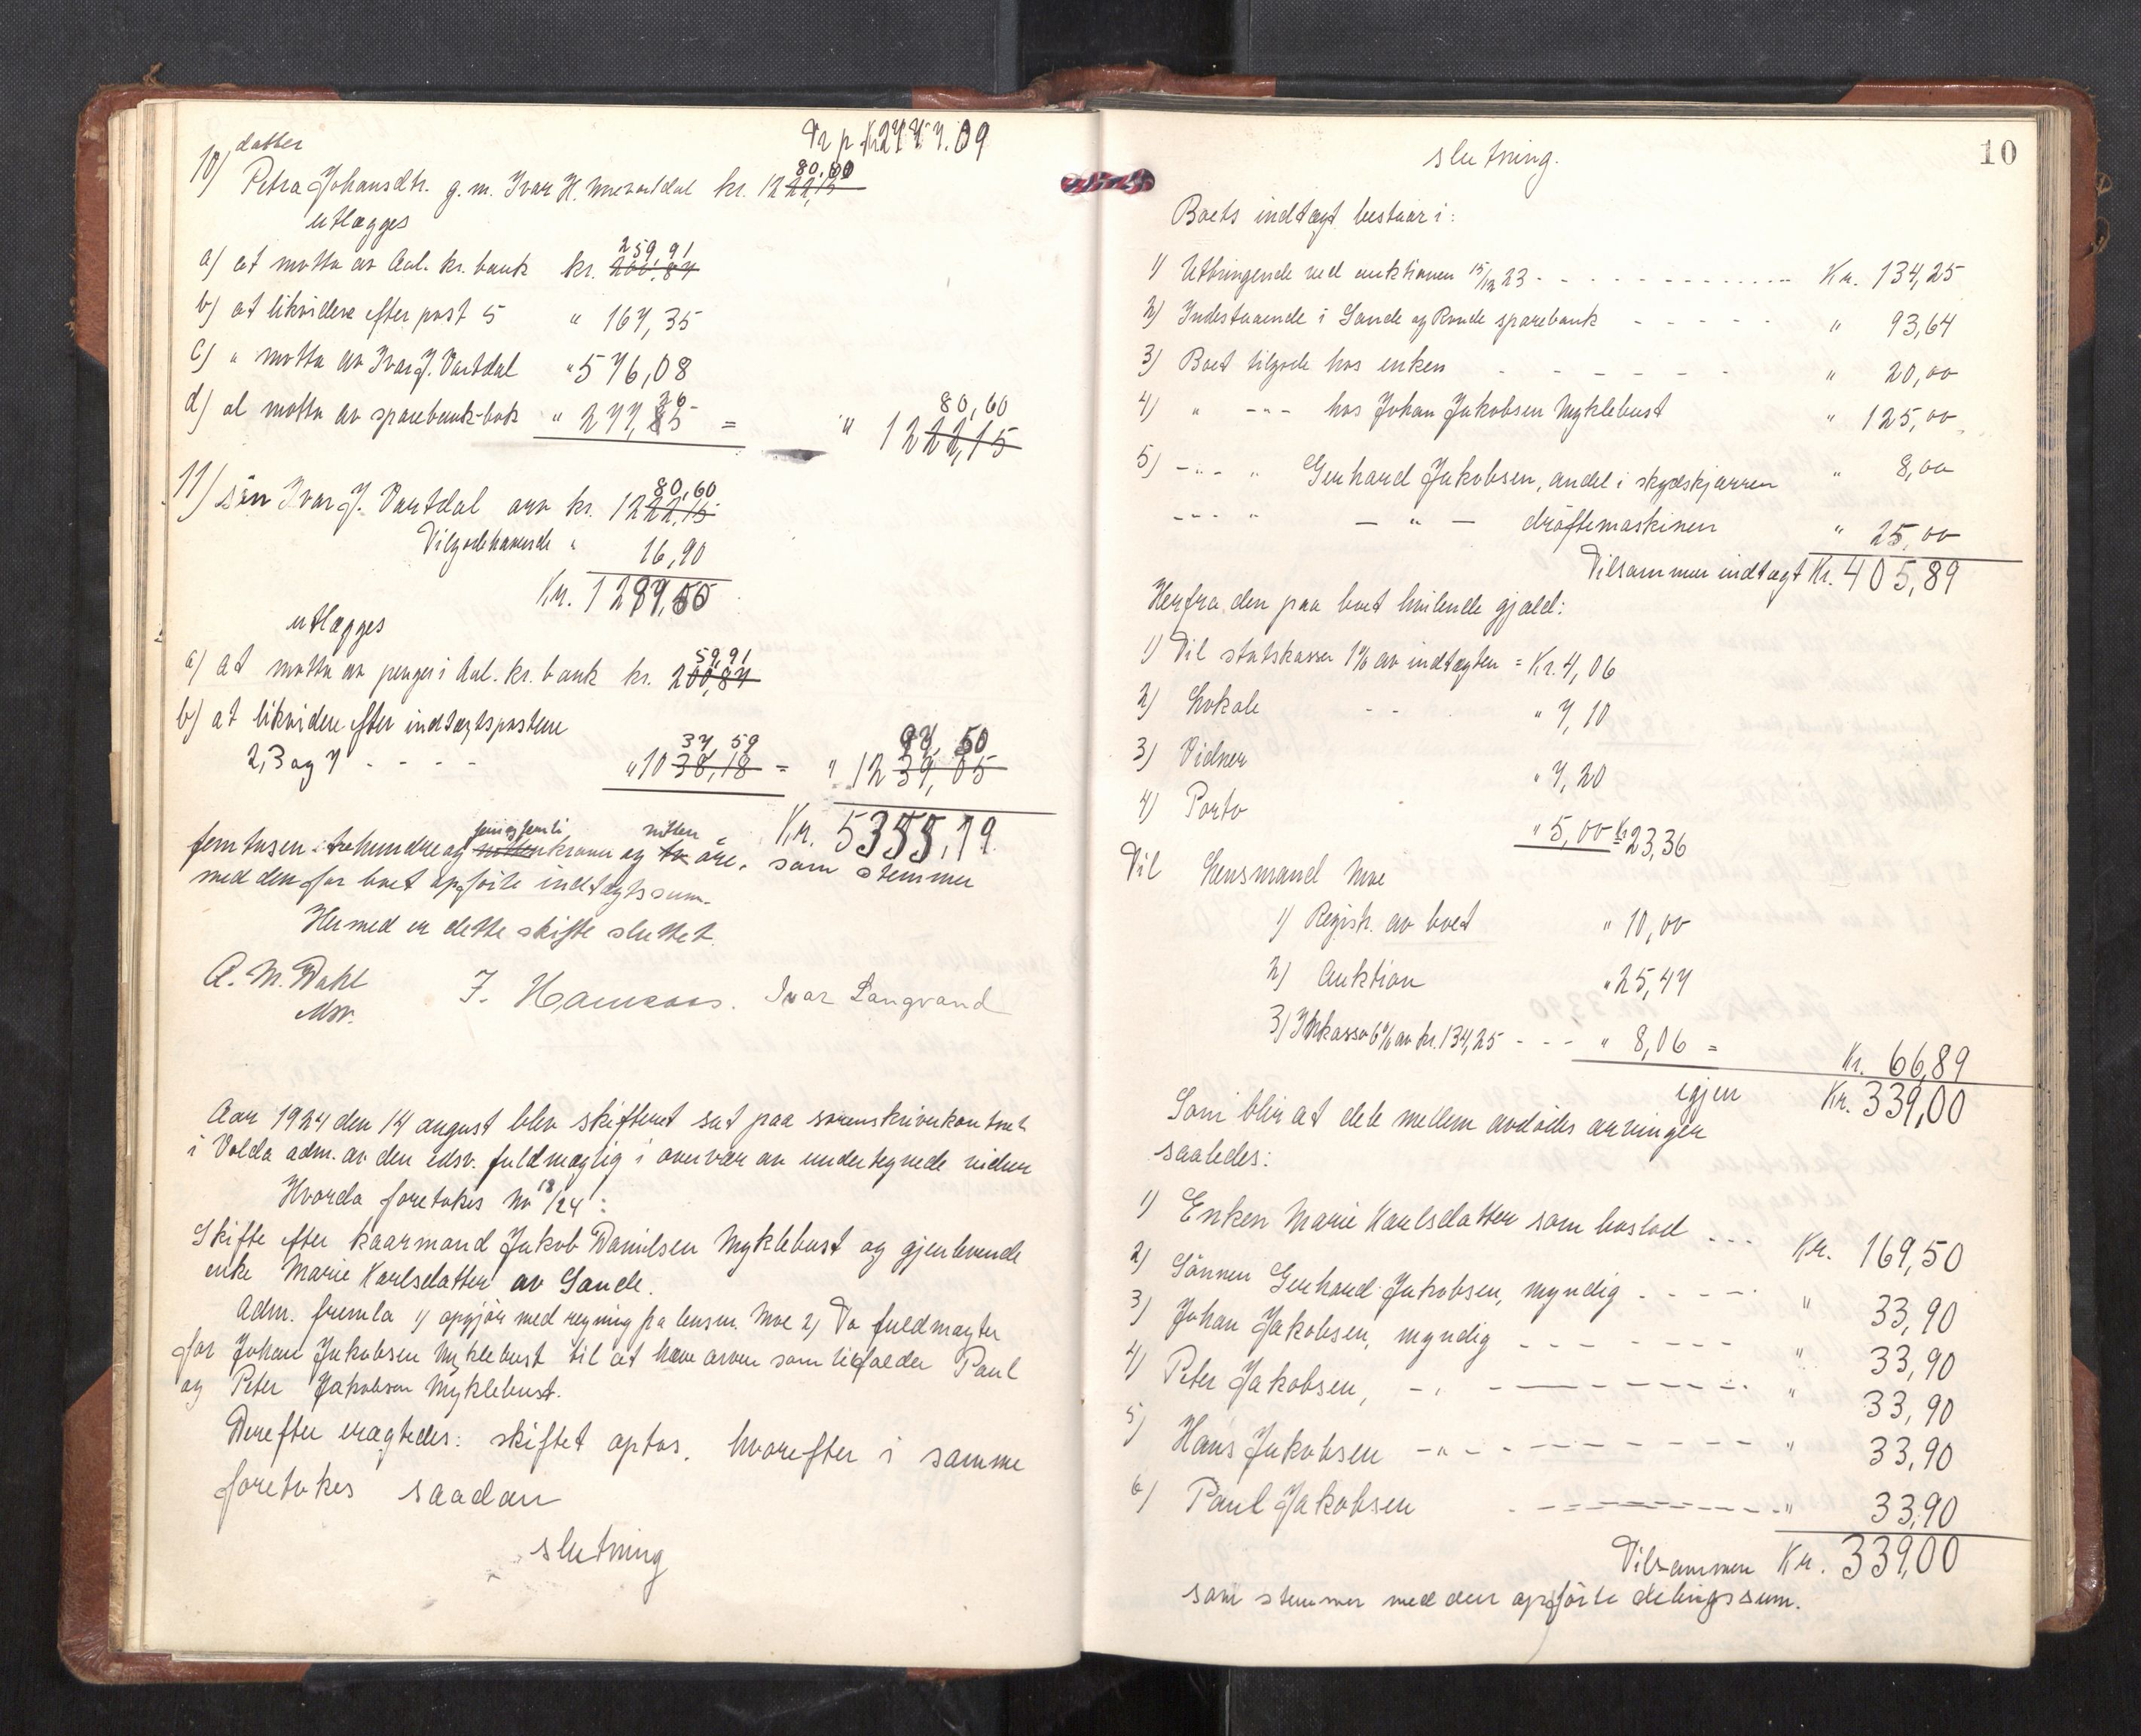 Tr p. Kr 2777.09
datter
80,60
10) Petra Johansdtr. g. m. Ivar H. kr. 1222,15
utlægges
259,91
a) at motta av Aal. kr. bank kr. 200,84
b) at likvidere efter post 5 " 167,35
c) " motta av Ivar J. Vartdal " 576,08
26
d) at motta av sparebank-bok " 277,85 =
80,60
" 1222,15
80,60
11) søn Ivar J. Vartdal arv kr. 1222,15
Tilgodehavende " 16,90
Kr. 1297,50
utlægges
59,91
a) at motta av penger i Aal. kr. bank kr. 200,84
b) at likvidere efter indtægtspostene
37 59 97, 50
2, 3 og 7 - - - - " 1038,18 = " 1239,05
Kr. 5355,19
femogfemti nitten
femtusen trehundreog nitten kroner og to øre. som stemmer
med den for boet opførte indtægtssum.
Hermed er dette skifte sluttet.
A. M. Dahl
edsv.
J. Ivar Langvand
Aar 1924 den 14 august blev skifteret sat paa sorenskriverkontoret
i Volda adm. av den edsv. fuldmægtig i overvær av undertegnede vidner
Hvorda foretokes No 18/24:
Skifte efter kaarmand Jakob Danielsen Myklebust og gjenlevende
enke Marie Karlsdatter av Sande.
Adm. fremla 1) opgjør med regning fra lensm. Moe 2) To fuldmagter
for Johan Jakobsen Myklebust til at hæve arven som tilfalder Paul
og Peter Jakobsen Myklebust.
Derefter eragtedes: skiftet optas. hvorefter i samme
foretokes saadan
slutning
10
slutning.
Boets indtægt bestaar i:
1) Utbringende ved auktionen 15/12 23 - - - - - Kr. 134,25
2) Indestaaende i Sande og Rovde sparebank - - - - - " 93,64
3) Boet tilgode hos enken - - - - - - " 20,00
4) " - " - hos Johan Jakobsen Myklebust " 125,00
5) - " - " Gerhard Jakobsen, andel i skydskjærren " 8,00
- " - " — " — drøftemaskinen " 25,00
Tilsammen indtægt Kr. 405,89
Herfra den paa boet hvilende gjæld:
1) Til statskassen 1% av indtægten = Kr. 4,06
2) Lokale - - " 7,10
3) Vidner " 7,20
4) Porto " 5,00 Kr 23,36
Til Lensmand Moe
1) Registr. av boet " 10,00
2) Auktion " 25,47
3) Inkasso 6% av kr. 134,25 - - - " 8,06 =
Kr. 66,89
igjen Kr. 339,00
Som blir at dele mellem avdødes arvinger
saaledes:
1) Enken Marie Karlsdatter som boslod . . . Kr. 169,50
2) Sønnen Gerhard Jakobsen, myndig - - - - " 33,90
3) Johan Jakobsen, myndig - - - - - " 33,90
4) Peter Jakobsen, - " - - - - - " 33,90
5) Hans Jakobsen - " - - - - - - " 33,90
6) Paul Jakobsen - - - - - - " 33,90
Tilsammen Kr. 339,00
som stemmer med den opførte delingssum.